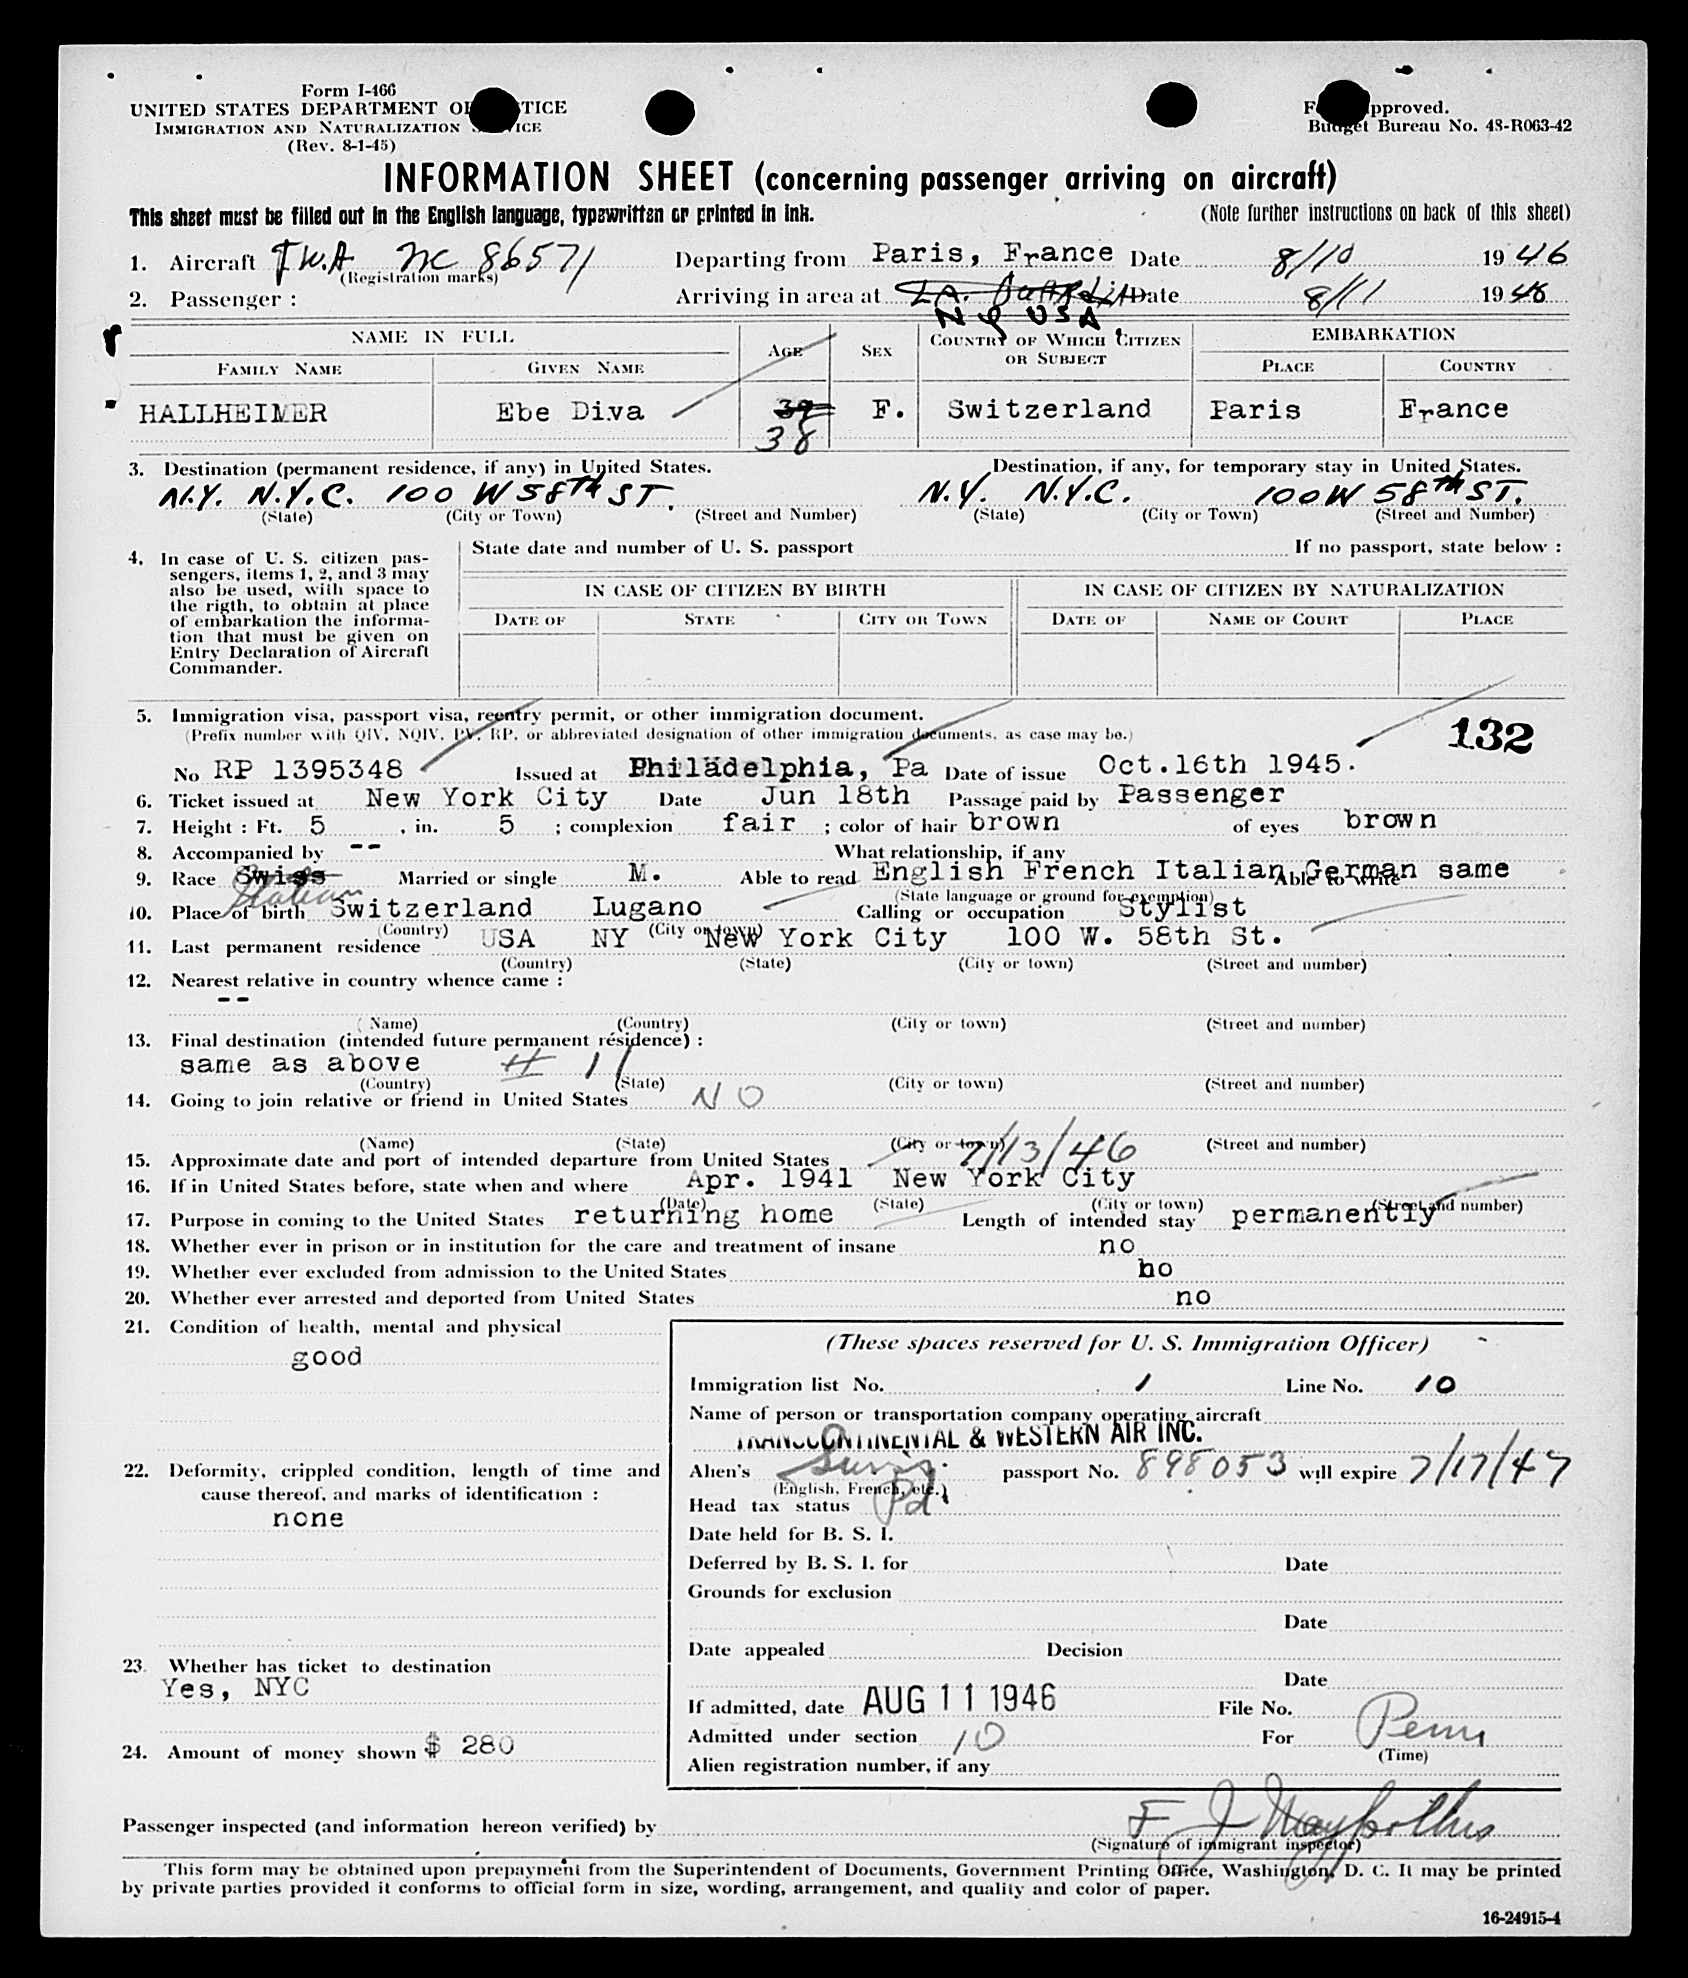 Form I-466
UNITED STATES DEPARTMENT OF JUSTICE
IMMIGRATION AND NATURALIZATION SERVICE
(Rev. 8-1-45)
Form approved.
Budget Bureau No. 43-R063-42
INFORMATION SHEET (concerning passenger arriving on aircraft)
This sheet must be filled out in the English language, typewritten or printed in ink. (Note further instructions on back of this sheet)
1. Aircraft TWA NC 86571 Departing from Paris, France Date 8/10 1946
(Registration marks)
2. Passenger : Arriving in area at Date 8/11 1946
NY USA.
NAME IN FULL AGE SEX COUNTRY OF WHICH CITIZEN OR SUBJECT EMBARKATION
FAMILY NAME GIVEN NAME PLACE COUNTRY
HALLHEIMER Ebe Diva 39 F. Switzerland Paris France
38
3. Destination (permanent residence, if any) in United States. Destination, if any, for temporary stay in United States.
N.Y. N.Y.C. 100 W 58TH ST. N.Y. N.Y.C. 100 W 58TH ST.
(State) (City or Town) (Street and Number) (State) (City or Town) (Street and Number)
4. In case of U. S. citizen pas-
sengers, items 1, 2, and 3 may
also be used, with space to
the rigth, to obtain at place
of embarkation the informa-
tion that must be given on
Entry Declaration of Aircraft
Commander.
State date and number of U. S. passport If no passport, state below :
IN CASE OF CITIZEN BY BIRTH IN CASE OF CITIZEN BY NATURALIZATION
DATE OF STATE CITY OR TOWN DATE OF NAME OF COURT PLACE
5. Immigration visa, passport visa, reentry permit, or other immigration document.
(Prefix number with QIV, NQIV, PV, RP, or abbreviated designation of other immigration documents, as case may be.)
132
No RP 1395348 Issued at Philadelphia, Pa Date of issue Oct.16th 1945.
6. Ticket issued at New York City Date Jun 18th Passage paid by Passenger
7. Height : Ft. 5 , in. 5 ; complexion fair ; color of hair brown of eyes brown
8. Accompanied by -- What relationship, if any
9. Race Swiss Italian Married or single M. Able to read English French Italian German Able to write same
(State language or ground for exemption)
10. Place of birth Switzerland Lugano Calling or occupation Stylist
(Country) (City or town)
11. Last permanent residence USA NY New York City 100 W. 58th St.
(Country) (State) (City or town) (Street and number)
12. Nearest relative in country whence came :
--
(Name) (Country) (City or town) (Street and number)
13. Final destination (intended future permanent residence) :
same as above # 11
(Country) (State) (City or town) (Street and number)
14. Going to join relative or friend in United States NO
(Name) (State) (City or town) (Street and number)
15. Approximate date and port of intended departure from United States 7/13/46
16. If in United States before, state when and where Apr. 1941 New York City
(Date) (State) (City or town) (Street and number)
17. Purpose in coming to the United States returning home Length of intended stay permanently
18. Whether ever in prison or in institution for the care and treatment of insane no
19. Whether ever excluded from admission to the United States no
20. Whether ever arrested and deported from United States no
21. Condition of health, mental and physical
good
22. Deformity, crippled condition, length of time and
cause thereof, and marks of identification :
none
23. Whether has ticket to destination
Yes, NYC
24. Amount of money shown $ 280
(These spaces reserved for U. S. Immigration Officer)
Immigration list No. 1 Line No. 10
Name of person or transportation company operating aircraft
TRANSCONTINENTAL & WESTERN AIR INC.
Alien's Swiss passport No. 898053 will expire 7/17/47
(English, French, etc.)
Head tax status Pd.
Date held for B. S. I.
Deferred by B. S. I. for Date
Grounds for exclusion
Date
Date appealed Decision
Date
If admitted, date AUG 11 1946 File No.
Admitted under section 10 For Perm
(Time)
Alien registration number, if any
Passenger inspected (and information hereon verified) by F J
(Signature of immigrant inspector)
This form may be obtained upon prepayment from the Superintendent of Documents, Government Printing Office, Washington, D. C. It may be printed
by private parties provided it conforms to official form in size, wording, arrangement, and quality and color of paper.
16-24915-4